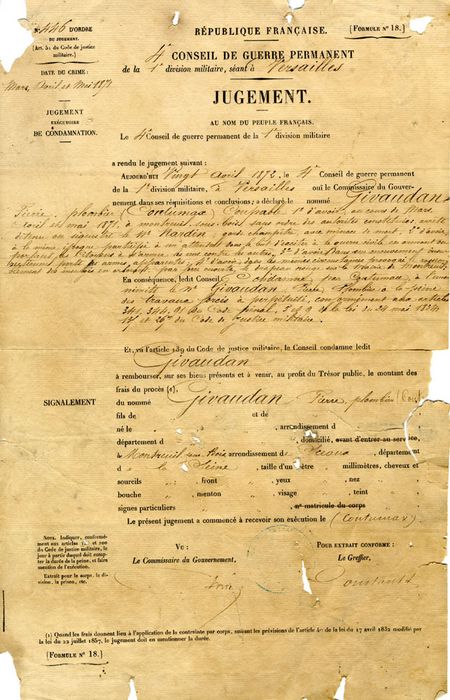 RÉPUBLIQUE FRANÇAISE.
[FORMULE N° 18.]
N° 446 D'ORDRE
DU JUGEMENT.
(Art. du Code de justice
militaire.)
DATE DU CRIME :
Mars, Avril et Mai 1871
JUGEMENT
EXÉCUTOIRE
DE CONDAMNATION.
4e CONSEIL DE GUERRE PERMANENT
de la 1e division militaire, séant à Versailles
JUGEMENT.
AU NOM DU PEUPLE FRANÇAIS.
Le 4e Conseil de guerre permanent de la 1e division militaire
a rendu le jugement suivant :
AUJOURD'HUI Vingt Avril 1872, le 4e Conseil de guerre permanent
de la 1e division militaire, à Versailles ouï le Commissaire du Gouver-
nement dans ses réquisitions et conclusions ; a déclaré le nommé Givaudan
Pierre, plombier (Contumax) Coupable 1° d'avoir, au cours de Mars,
avril et mai 1871, à Montreuil sous bois, sans ordre des autorités constituées, arrêté
garde champêtre, avec menace de mort 2° d'avoir,
à la même époque participé à un attentat dans le but d'exciter à la guerre civile en armant ou
En conséquence, ledit Conseil Condamne, par Contumace, à l'una-
nimité le Né Givaudan, Pierre, Plombier à la peine
des travaux forcés à perpétuité, conformément aux articles
341, 344, 91 du Code pénal, 5 et 9 de la loi du 24 mai 1834
Code de Justice militaire.
Et, vu l'article 139 du Code de justice militaire, le Conseil condamne ledit
Givaudan
à rembourser, sur ses biens présents et à venir, au profit du Trésor public, le montant des
frais du procès (1).
SIGNALEMENT
du nommé Givaudan Pierre, plombier
fils de et de
né le , à , arrondissement d
département d , domicilié, avant d'entrer au service,
à Montreuil sous Bois arrondissement de Sceaux, département
d de la Seine, taille d'un mètre millimètres, cheveux et
sourcils , front , yeux , nez
bouche , menton , visage , teint
signes particuliers , n° matricule du corps
Le présent jugement a commencé à recevoir son exécution le (Contumax)
NOTA. Indiquer, conformé-
ment aux articles et 200
du Code de justice militaire, le
jour à partir duquel doit comp-
ter la durée de la peine, et faire
mention de l'exécution.
Extrait pour le corps, la di-
vision, la prison, etc.
Vu :
Le Commissaire du Gouvernement,
POUR EXTRAIT CONFORME :
Le Greffier,
(1) Quand les frais donnent lieu à l'application de la contrainte par corps, suivant les prévisions de l'article 4 de la loi du 17 avril 1832 modifié par
la loi du 22 juillet 1867, le jugement doit en mentionner la durée.
[FORMULE N° 18.]